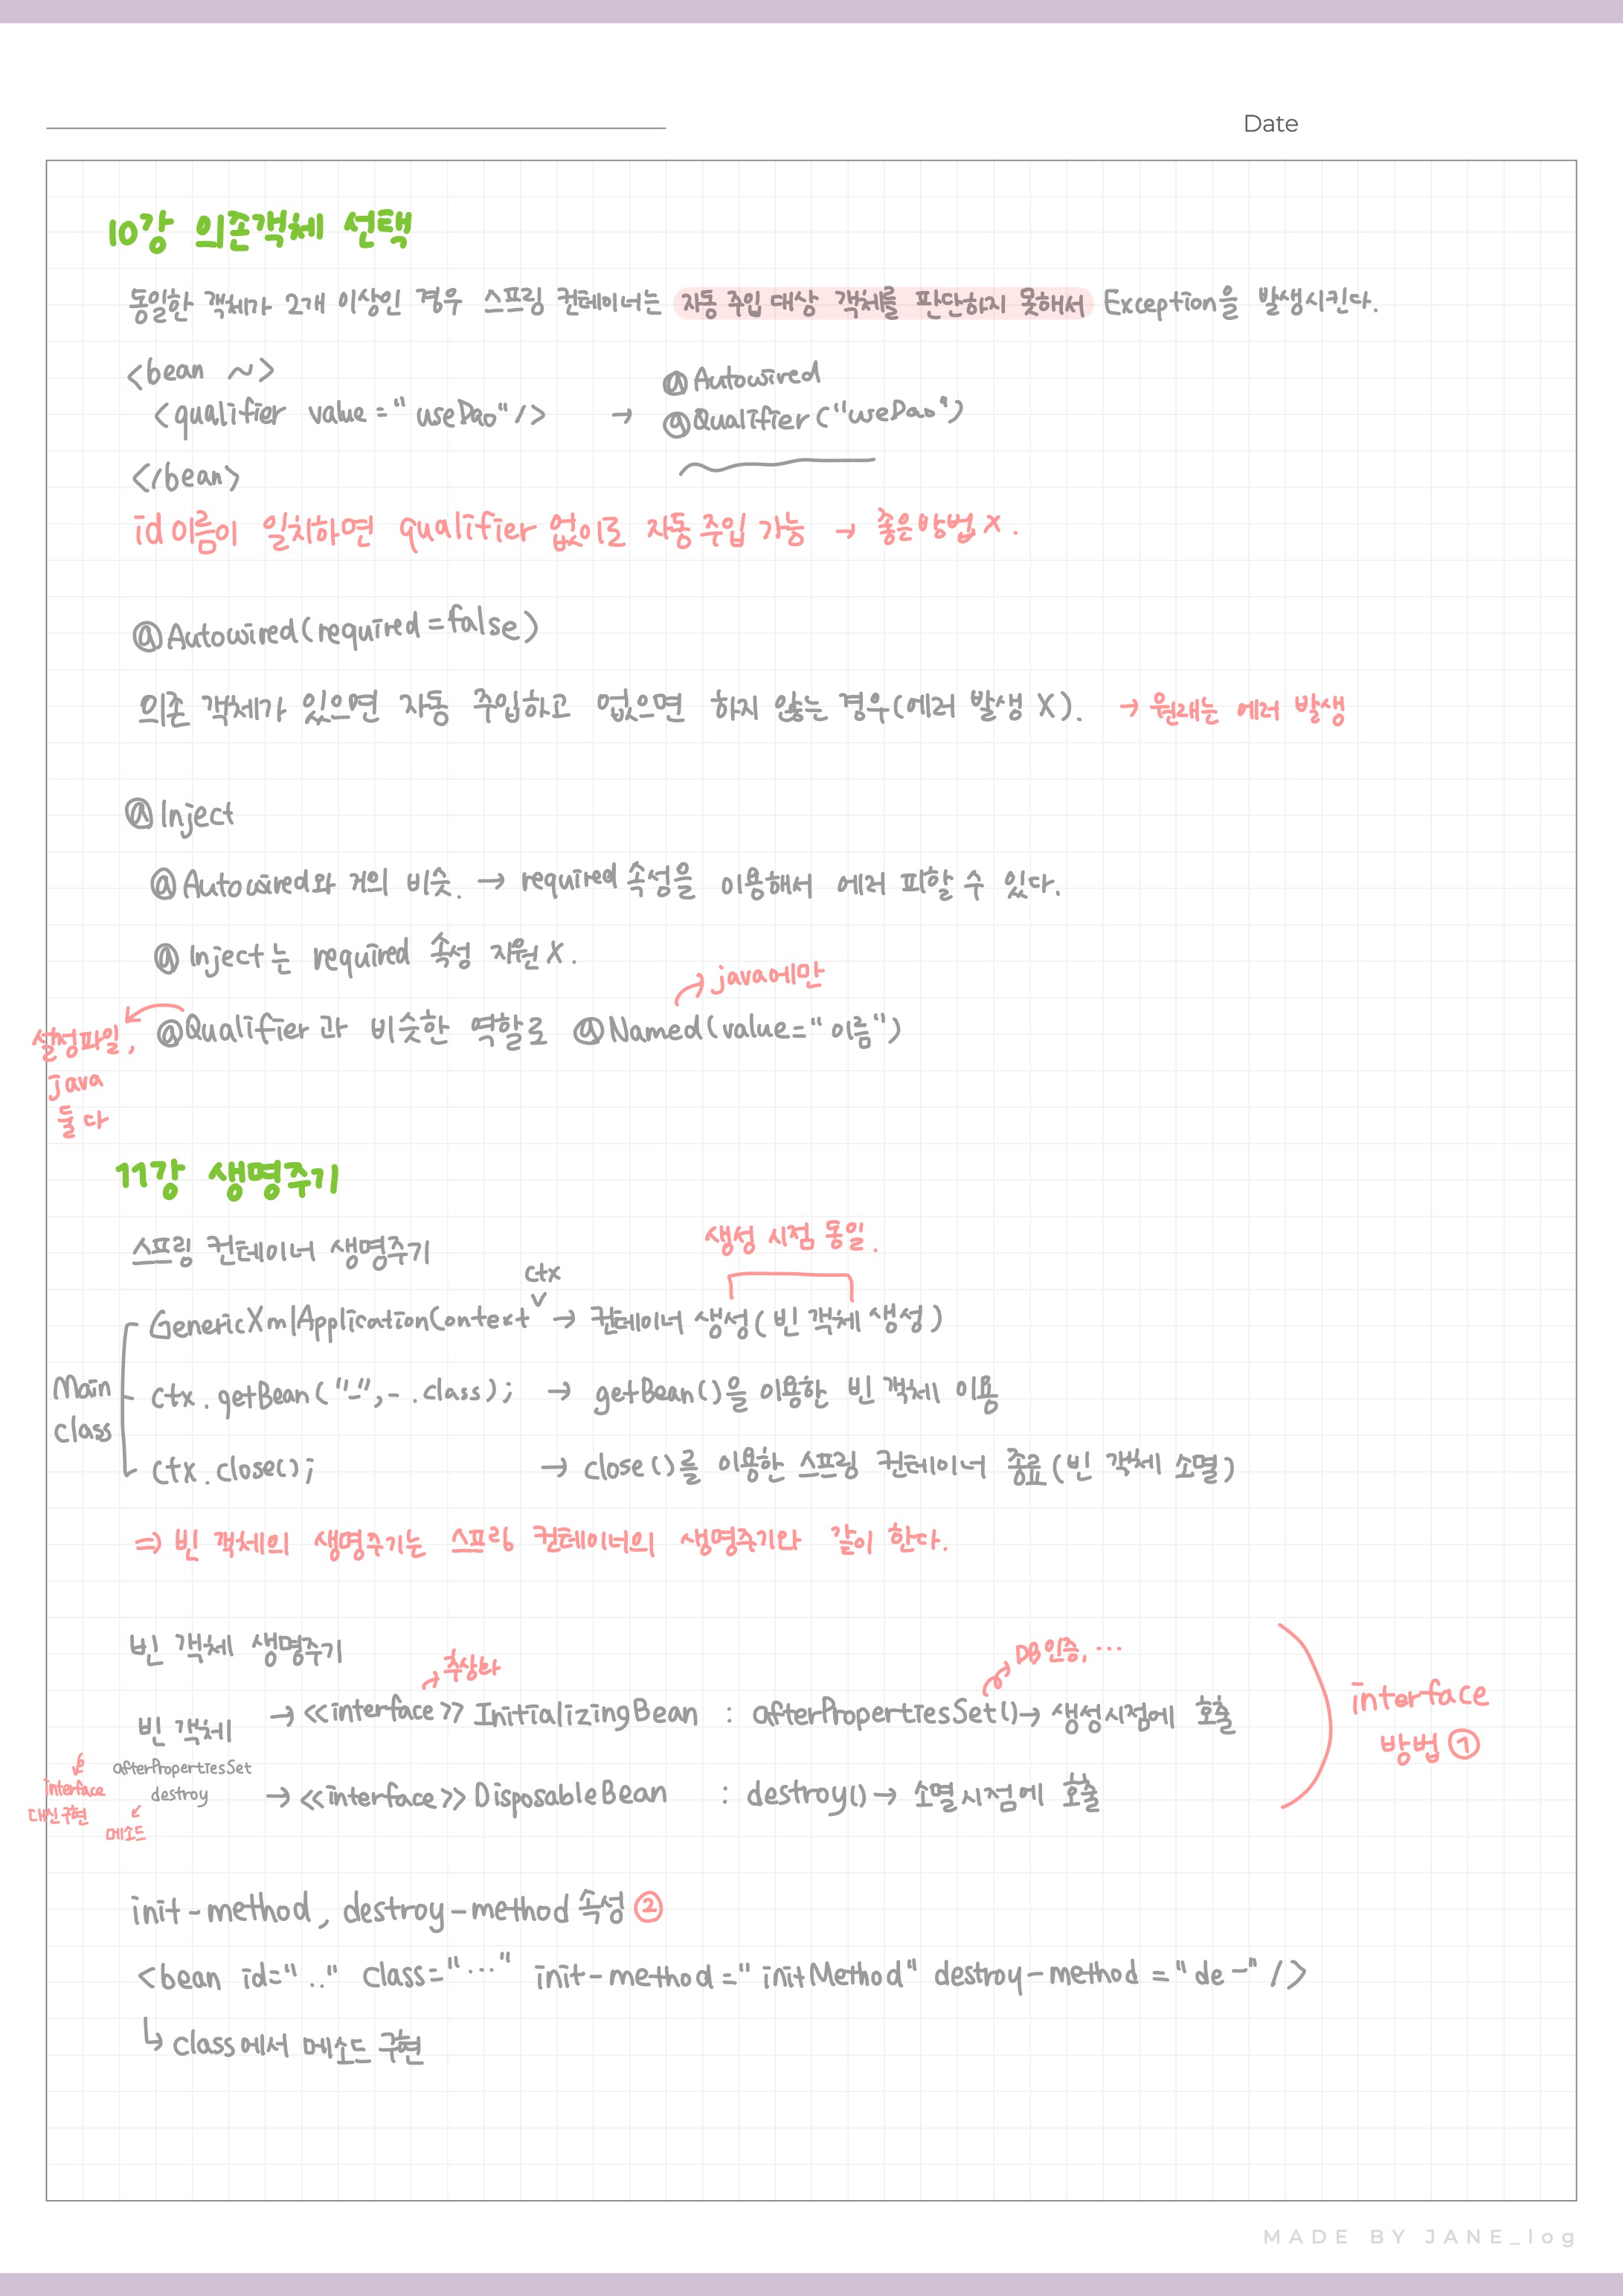 Date
10강 의존객체 선택
동일한 객체가 2개 이상인 경우 스프링 컨테이너는 자동 주입 대상 객체를 판단하지 못해서 Exception을 발생시킨다.
<bean ~>
<qualifier value="useDao"/> → @Autowired
@Qualifier("useDao")
</bean>
id 이름이 일치하면 qualifier 없이도 자동 주입 가능 → 좋은방법 X.
@Autowired(required=false)
의존 객체가 있으면 자동 주입하고 없으면 하지 않는 경우(에러 발생 X). → 원래는 에러 발생
@Inject
@Autowired와 거의 비슷. → required 속성을 이용해서 에러 피할 수 있다.
@Inject는 required 속성 지원 X.
→ java에만
@Qualifier과 비슷한 역할로 @Named(value="이름")
설정파일,
java
둘 다
11강 생명주기
스프링 컨테이너 생명주기
생성 시점 동일.
ctx
GenericXmlApplicationContext → 컨테이너 생성(빈 객체 생성)
Main
class
ctx.getBean("-",-.class); → getBean()을 이용한 빈 객체 이용
ctx.close(); → close()를 이용한 스프링 컨테이너 종료(빈 객체 소멸)
⇒ 빈 객체의 생명주기는 스프링 컨테이너의 생명주기와 같이 한다.
빈 객체 생명주기
→ 추상화
DB인증, ...
빈 객체 → <<interface>> InitializingBean : afterPropertiesSet() → 생성시점에 호출
interface
방법 ①
afterPropertiesSet
destroy
interface
대신구현
메소드
→ <<interface>> DisposableBean : destroy() → 소멸시점에 호출
init-method, destroy-method 속성 ②
<bean id=".." class="..." init-method="initMethod" destroy-method="de-"/>
↳ class에서 메소드 구현
MADE BY JANE_log